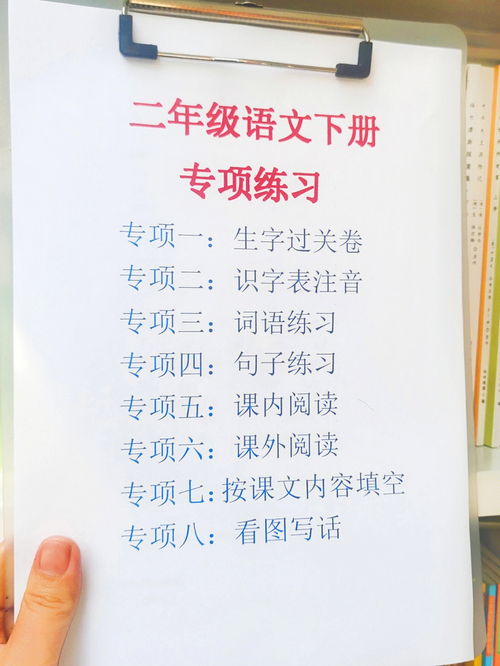 二年级语文下册
专项练习
专项一：生字过关卷
专项二：识字表注音
专项三：词语练习
专项四：句子练习
专项五：课内阅读
专项六：课外阅读
专项七：按课文内容填空
专项八：看图写话